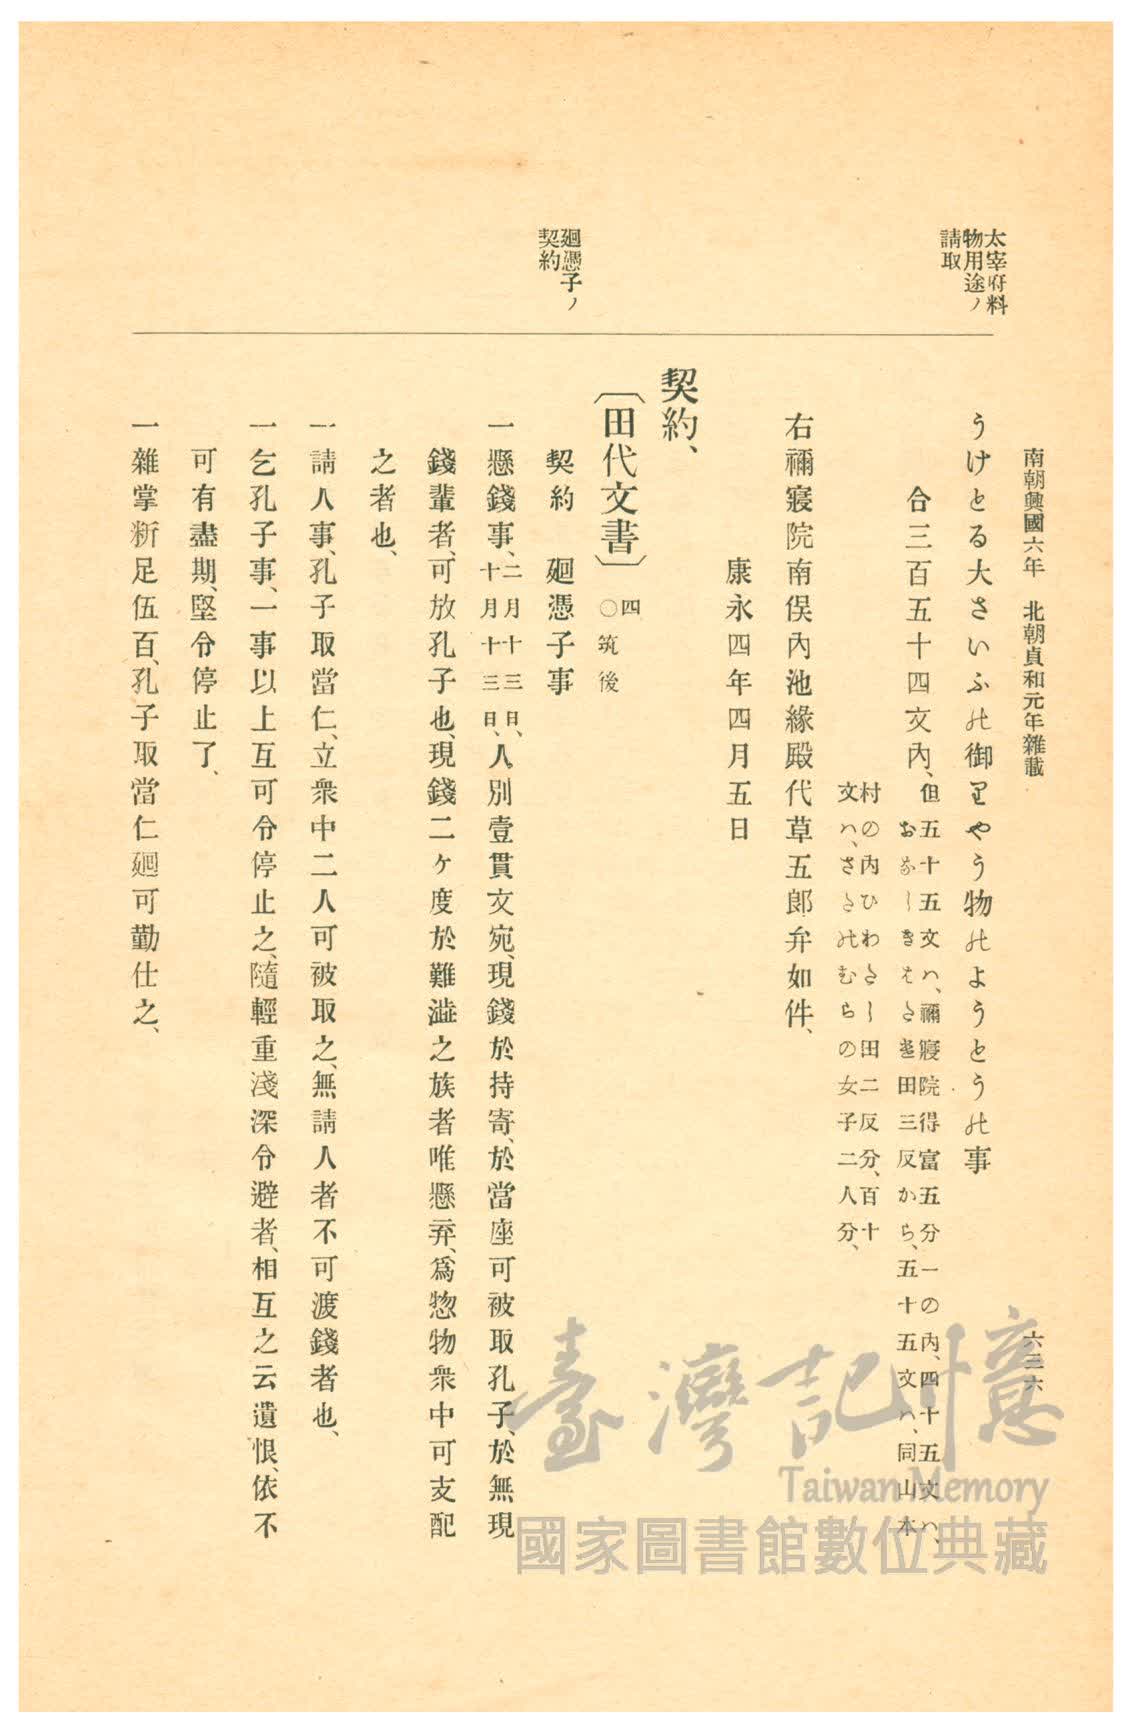 南朝興國六年　北朝貞和元年雜載
六三六
太宰府料
物用途ノ
請取
廻憑子ノ
契約
うけとる大さいふ〻御里やう物〻ようとう〻事
合三百五十四文內、
但五十五文ハ、禰寢院得富五分一の內、四十五文ハ、
田三反から、五十五文ハ、同山本
村の內ひわ田二反分、百十
文ハ、むらの女子二人分、
右禰寢院南俣內池緣殿代草五郎弁如件、
康永四年四月五日
契約、
〔田代文書〕
四
○筑後
契約　廻憑子事
一懸錢事、
二月十三日、
十月十三日、
人別壹貫文宛、現錢於持寄、於當座可被取孔子、於無現
錢輩者、可放孔子也、現錢二ケ度於難澁之族者唯懸弃、爲惣物衆中可支配
之者也、
一請人事、孔子取當仁、立衆中二人可被取之、無請人者不可渡錢者也、
一乞孔子事、一事以上互可令停止之、隨輕重淺深令避者、相互之云遺恨、依不
可有盡期、堅令停止了、
一雜掌新足伍百、孔子取當仁廻可勤仕之、
臺灣記憶
Taiwan Memory
國家圖書館數位典藏